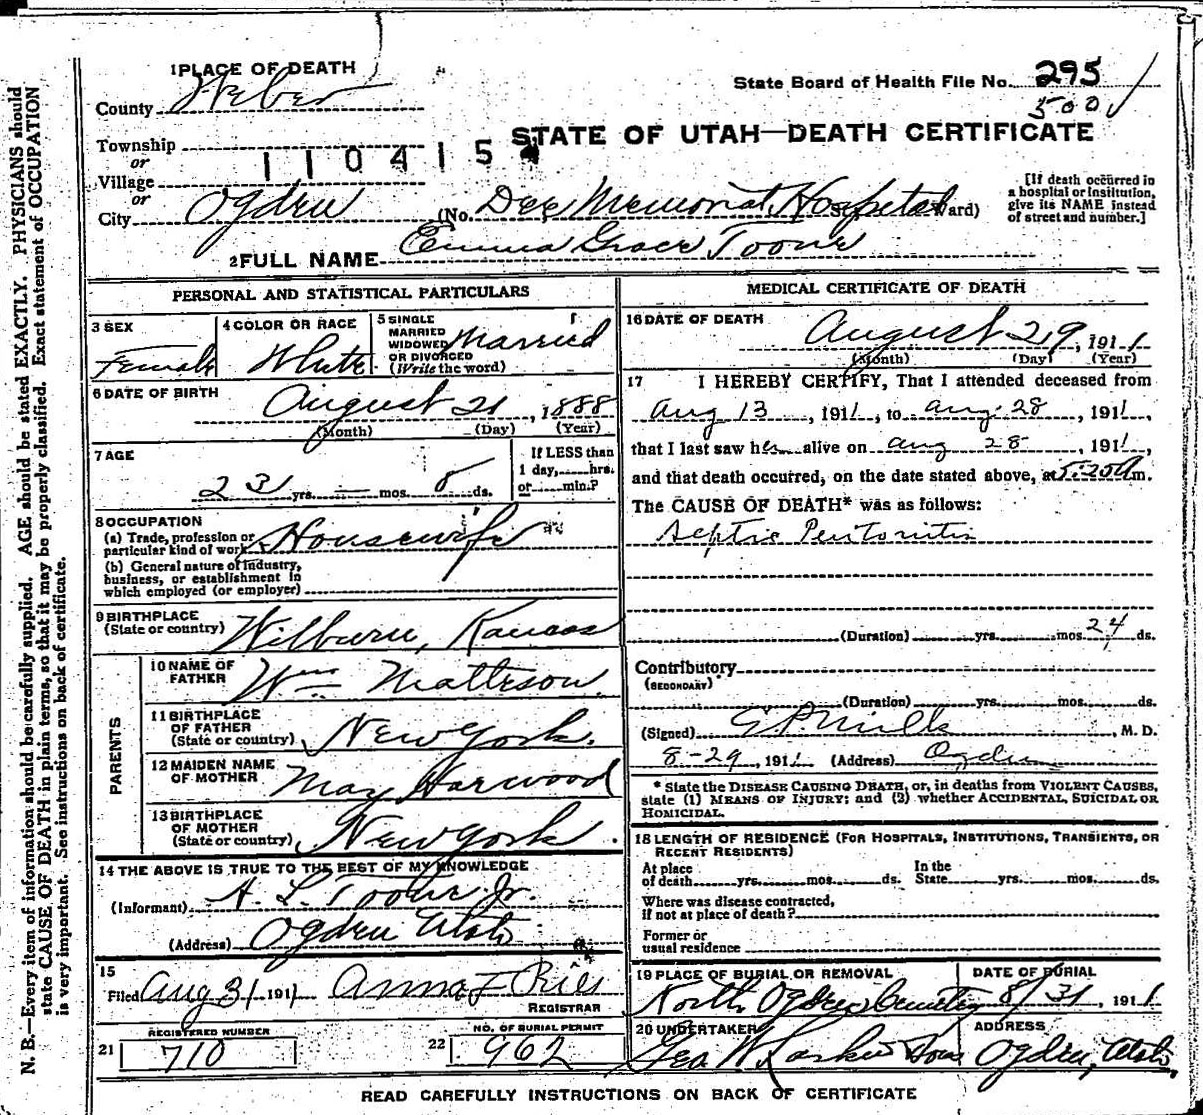 1 PLACE OF DEATH
County Weber
State Board of Health File No. 295
500
Township
or
1104154
Village
or
City Ogden
STATE OF UTAH—DEATH CERTIFICATE
(No. Dee Memorial Hospital St. Ward)
[If death occurred in
a hospital or institution,
give its NAME instead
of street and number.]
2 FULL NAME Emma Grace Toone
PERSONAL AND STATISTICAL PARTICULARS
3 SEX
Female
4 COLOR OR RACE
White
5 SINGLE
MARRIED
WIDOWED
OR DIVORCED
(Write the word)
Married
6 DATE OF BIRTH
August 21, 1888
(Month) (Day) (Year)
7 AGE
23 yrs. — mos. 8 ds.
If LESS than
1 day, hrs.
or min.?
8 OCCUPATION
(a) Trade, profession or
particular kind of work Housewife
(b) General nature of industry,
business, or establishment in
which employed (or employer)
9 BIRTHPLACE
(State or country) Wilburn, Kansas
PARENTS
10 NAME OF
FATHER Wm Matteson.
11 BIRTHPLACE
OF FATHER
(State or country) New York.
12 MAIDEN NAME
OF MOTHER May Harwood
13 BIRTHPLACE
OF MOTHER
(State or country) New York.
14 THE ABOVE IS TRUE TO THE BEST OF MY KNOWLEDGE
(Informant) A. L. Toone Jr.
(Address) Ogden Utah
15
Filed Aug 31 1911 Anna F Ries
REGISTRAR
21 REGISTERED NUMBER
710
22 NO. OF BURIAL PERMIT
962
MEDICAL CERTIFICATE OF DEATH
16 DATE OF DEATH
August 29, 1911
(Month) (Day) (Year)
17 I HEREBY CERTIFY, That I attended deceased from
Aug 13, 1911, to Aug. 28, 1911,
that I last saw her alive on Aug 28, 1911,
and that death occurred, on the date stated above, at 5:20 A m.
The CAUSE OF DEATH* was as follows:
Septic Peritonitis
(Duration) yrs. mos. 24 ds.
Contributory
(SECONDARY)
(Duration) yrs. mos. ds.
(Signed) Mills, M. D.
8-29, 1911 (Address) Ogden
* State the DISEASE CAUSING DEATH, or, in deaths from VIOLENT CAUSES,
state (1) MEANS OF INJURY; and (2) whether ACCIDENTAL, SUICIDAL OR
HOMICIDAL.
18 LENGTH OF RESIDENCE (FOR HOSPITALS, INSTITUTIONS, TRANSIENTS, OR
RECENT RESIDENTS)
At place
of death yrs. mos. ds.
In the
State yrs. mos. ds.
Where was disease contracted,
if not at place of death?
Former or
usual residence
19 PLACE OF BURIAL OR REMOVAL
North Ogden Cemetery
DATE OF BURIAL
8/31, 1911
20 UNDERTAKER
Geo W. Larkin Sons
ADDRESS
Ogden, Utah
READ CAREFULLY INSTRUCTIONS ON BACK OF CERTIFICATE
N. B.—Every item of information should be carefully supplied. AGE should be stated EXACTLY. PHYSICIANS should
state CAUSE OF DEATH in plain terms, so that it may be properly classified. Exact statement of OCCUPATION
is very important. See instructions on back of certificate.